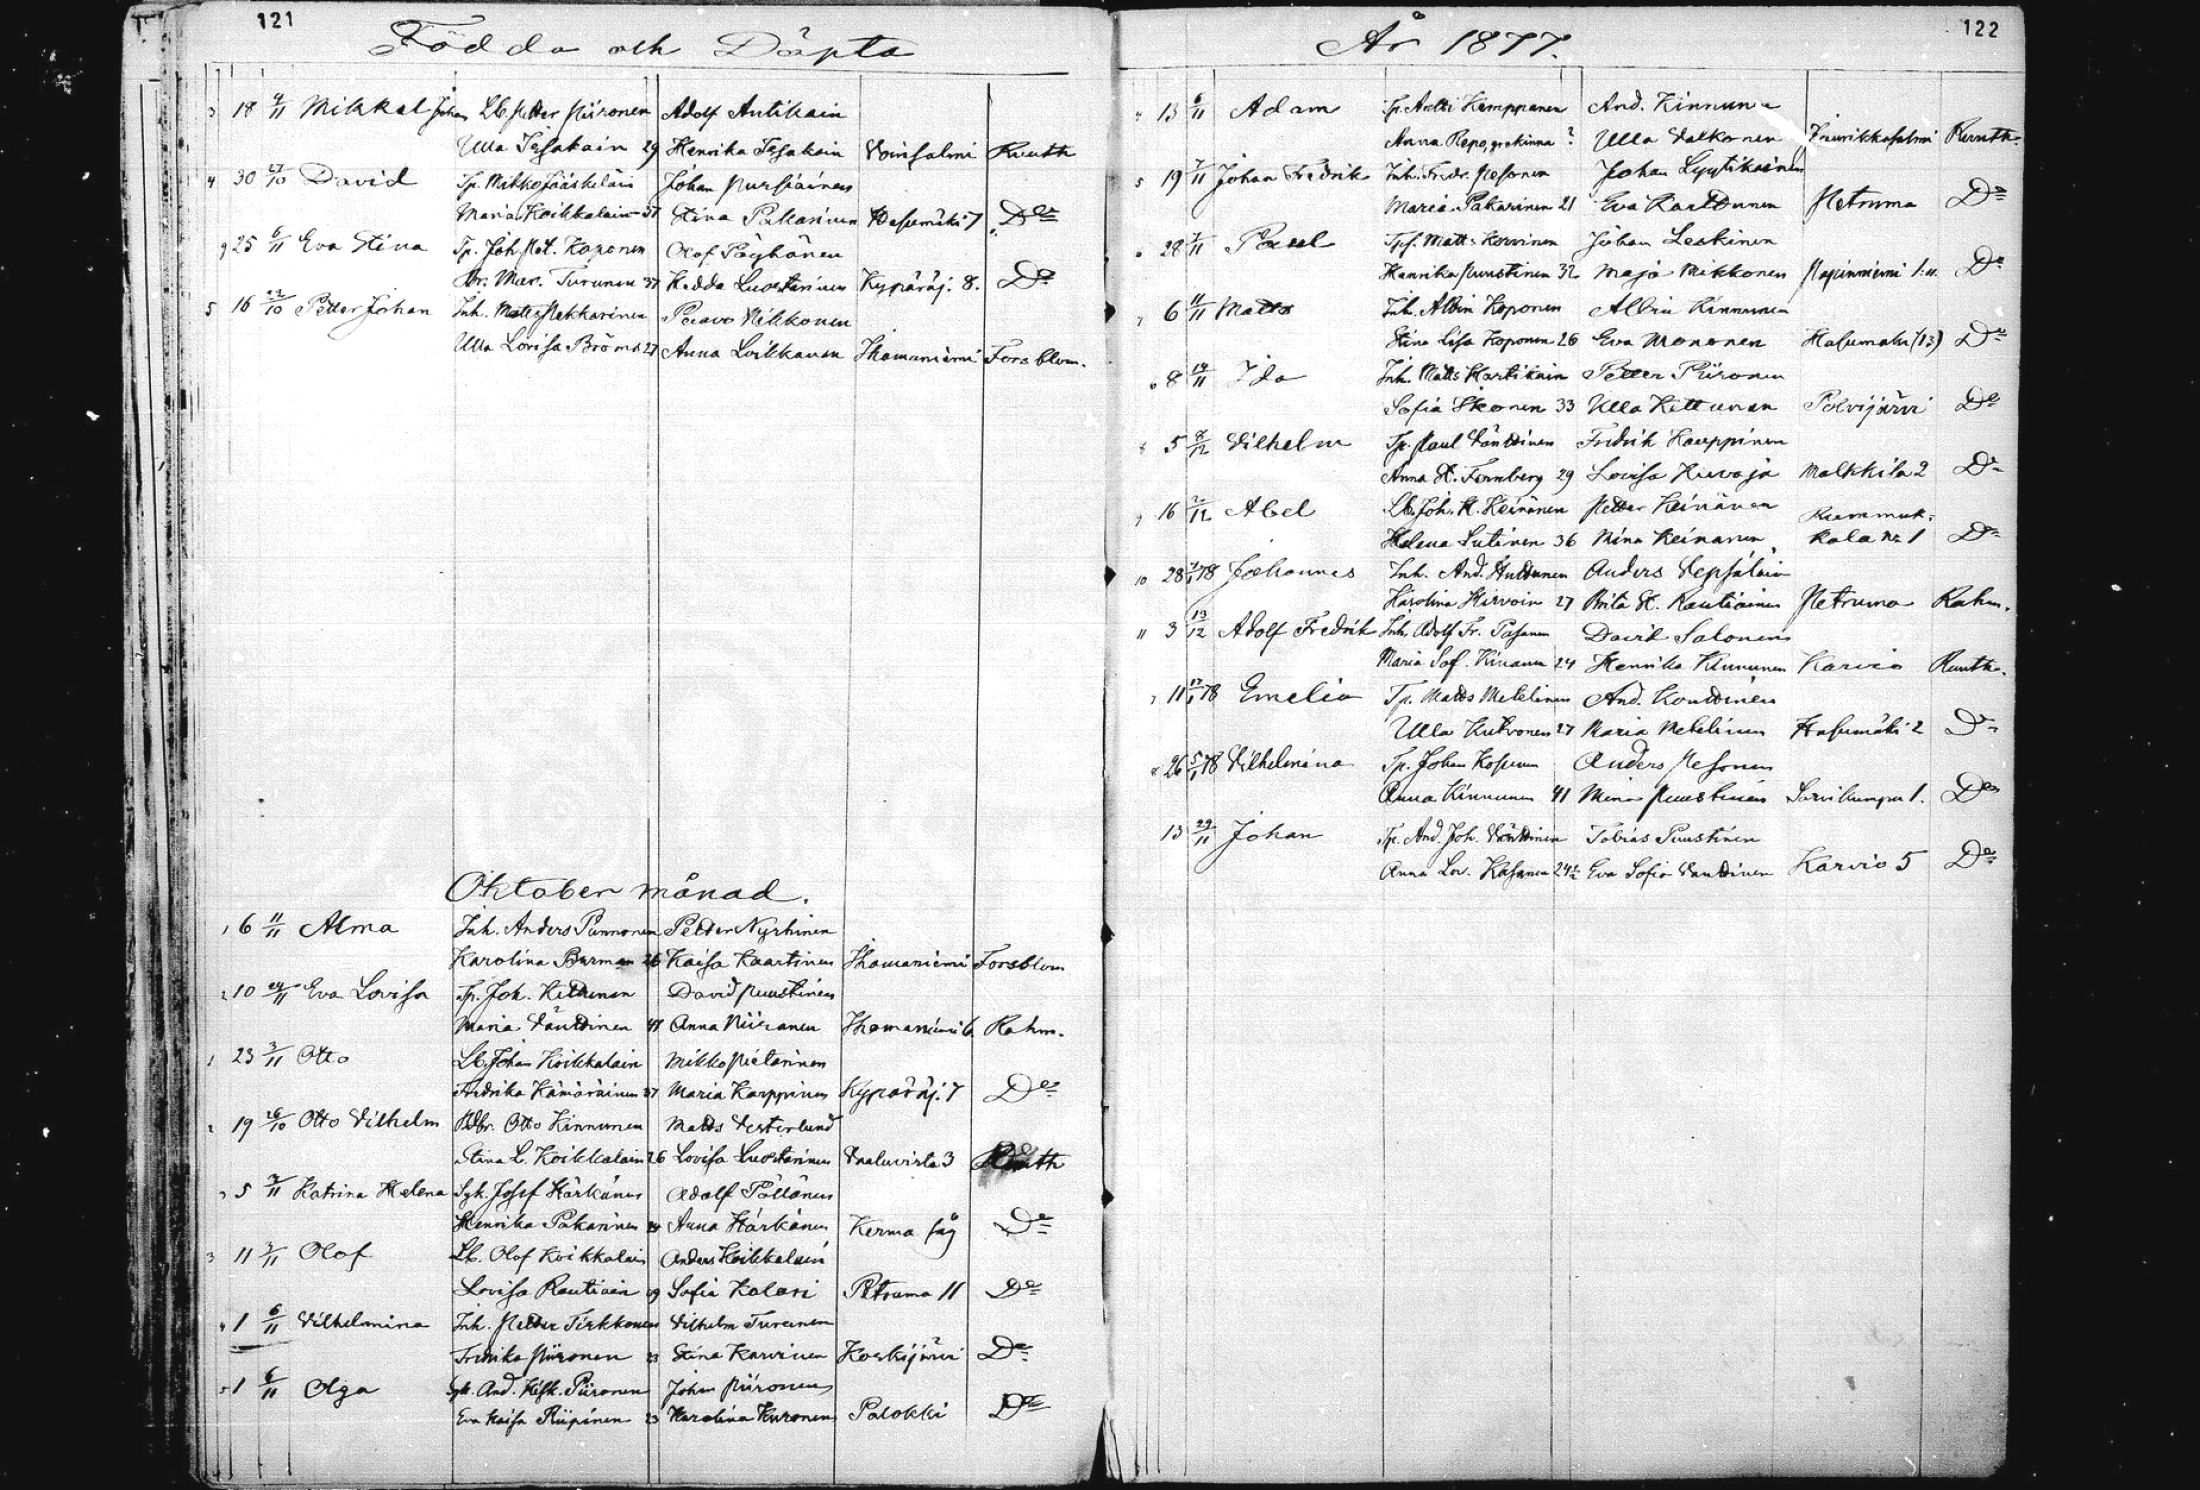 121
Födda och Döpta
3 18 4/11 Mikkel Johan Lb. Petter Piironen Adolf Antikain
Ulla Issakain 29 Henrika Issakain Voinsalmi Ruuth
4 30 27/10 David Tp. Mikko Jääskeläin Johan Pursiainen
Maria Koikkalain 37 Stina Pakarinen Hasumäki 7 Do
25 6/11 Eva Stina Tp. Joh. Pet. Koponen Olof Pöyhönen
Br. Mar. Turunen 37 Hedda Luostarinen Kypäräj. 8. Do
5 16 22/10 Petter Johan Inh. Matts Pekkarinen Paavo Mikkonen
Ulla Lovisa Broms 27 Anna Loikkanen Ihamaniemi Forsblom.
Oktober månad.
1 6 11/11 Alma Inh. Anders Punnonen Petter Nyrhinen
Karolina Burman 26 Kaisa Kaartinen Ihamaniemi Forsblom
2 10 24/11 Eva Lovisa Tp. Joh. Kettunen David Puustinen
Maria Vänttinen 41 Anna Niiranen Ihamaniemi 6 Rahm.
1 23 3/11 Otto Lb. Johan Koikkalain Mikko Pietarinen
Fredrika Hämäräinen 37 Maria Karppinen Kypäräj. 7 Do
2 19 26/10 Otto Vilhelm Otto Kinnunen Matts Vesterlund
Stina L. Koikkalain 26 Lovisa Luostarinen Vaaluvirta 3 Ruuth
5 3/11 Katrina Helena Josef Härkönen Adolf Pöllänen
Henrika Pakarinen Anna Härkönen Kerma såg Do
3 11 3/11 Olof Lb. Olof Koikkalain Anders Koikkalain
Lovisa Rautiain Sofia Kalari Petruma 11 Do
4 1 6/11 Vilhelmina Inh. Petter Tirkkonen Vilhelm Turunen
Fredrika Piironen 23 Stina Karvinen Koskijärvi Do
5 1 6/11 Olga And. Piironen Johan Piironen
Eva Kaisa Riipinen 23 Karolina Kuronen Palokki Do
122
År 1877.
13 6/11 Adam Tp. Antti Kemppanen And. Kinnunen
Anna Repo, ? Ulla Valkonen Ruuth.
5 19 7/11 Johan Fredrik Inh. Fredr. Pesonen Johan Lyytikäinen
Maria Pakarinen 21 Eva Karttunen Petruma Do
28 7/11 Paul Matts Korvinen Johan Leskinen
Henrika Puustinen 32 Maja Mikkonen Papinniemi Do
7 6 11/11 Matts Inh. Albin Koponen Albin Kinnunen
Stina Lisa Koponen 26 Eva Mononen Hasumäki (13) Do
8 14/11 Ida Inh. Matts Hartikain Petter Piironen
Sofia Ikonen 33 Ulla Kettunen Polvijärvi Do
5 2/12 Vilhelm Tp. Paul Vänttinen Fredrik Kauppinen
Anna K. Fernberg 29 Lovisa Hirvoja Malkkila 2 Do
9 16 Abel Lb. Joh. H. Keinänen Petter Keinänen Rummuk-
Helena Sutinen 36 Mina Keinänen kala No 1 Do
10 28 78 Johannes Inh. And. Huttunen Anders Sepsäläin
Karolina Hirvoin 27 Brita K. Rautiainen Petruma Rahm.
11 3 13/12 Adolf Fredrik Inh. Adolf Fr. Pasanen David Salonen
Maria Sof. Kinanen 24 Henrika Kinnunen Karvio Ruuth.
11 78 Emelia Tp. Matts Metelinen And. Konttinen
Ulla Kutvonen 27 Maria Metelinen Hasumäki 2 Do
26 5/1 78 Vilhelmina Tp. Johan Kosunen Anders Pesonen
Anna Kinnunen 41 Mina Puustinen Sarvikumpu 1. Do
13 29/11 Johan Tp. And. Joh. Vänttinen Tobias Puustinen
Anna Lov. Kasanen 24 1/2 Eva Sofia Vänttinen Karvio 5 Do